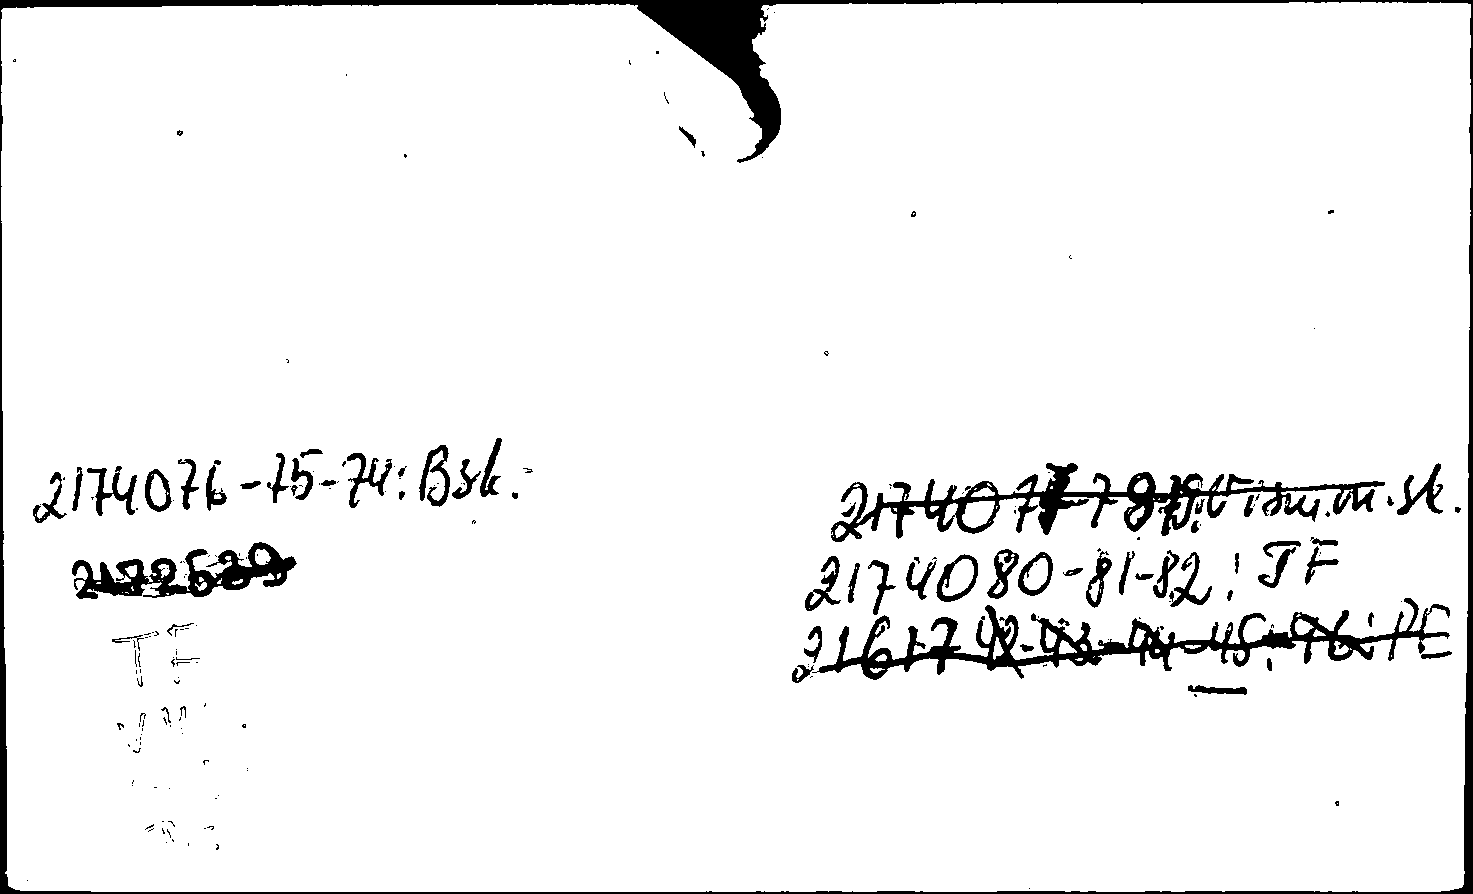 2174076-75-74: Bsk.
2172539
TF
2174077 78 79: m.sk.
2174080-81-82: TF
2161742-43-44-45: -46: PE